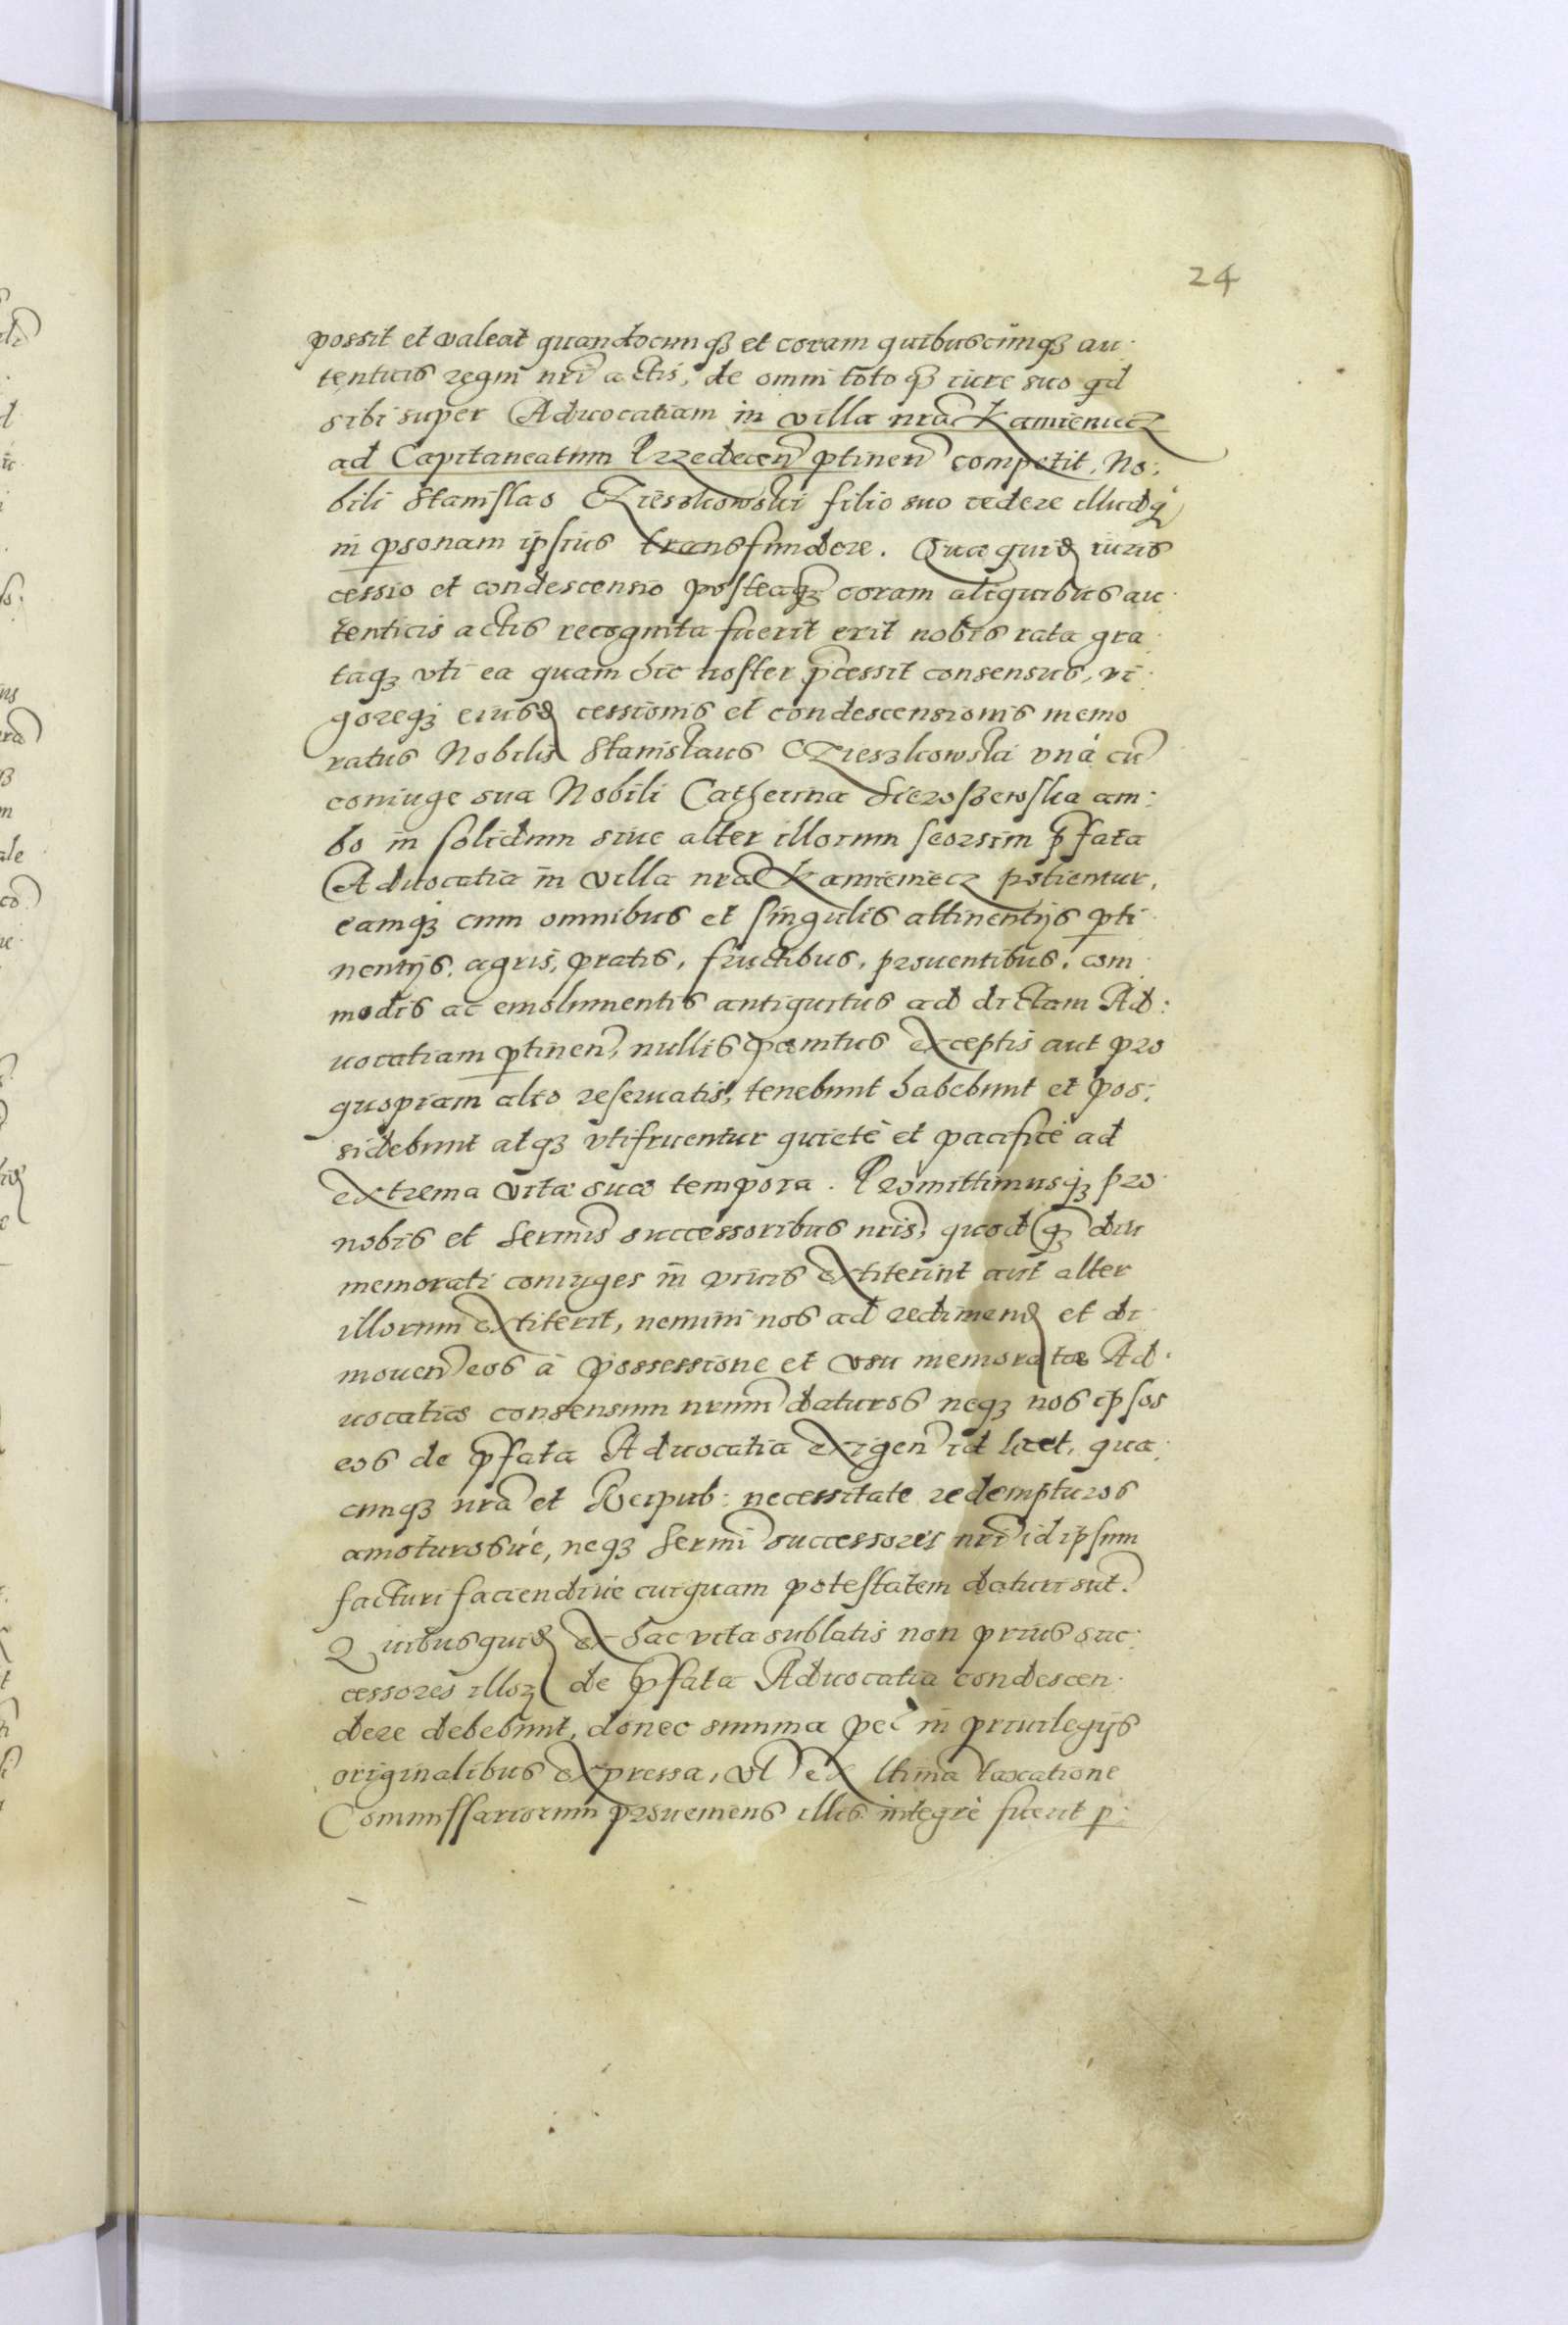 24
possit et valeat quandocunqꝫ et coram quibuscunqꝫ au:
tenticis regni nrĩ actis, de omni totoqꝫ iure suo qđ
sibi super Aduocatiam in villa nrã Kamieniecz
ad Capitaneatum Przedecen̄ ꝑtinen̄ competit, No:
bili Stanislao Czieszkowski filio suo cedere illudqꝫ
in ꝑsonam ipsius transfundere. Quae quiđ iuris
cessio et condescensio posteaqꝫ coram aliquibus au:
tenticis actis recognita fuerit erit nobis rata gra:
taqꝫ vti ea quam hic noster p̄cessit consensus, vi:
goreqꝫ eiusđ cessionis et condescensionis memo
ratus Nobilis Stanislaus Czieszkowski vnà cũ
coniuge sua Nobili Catherina Sieroszewska am:
bo in solidum siue alter illorum seorsim p̄fata
Aduocatia in villa nrã Kamieniecz potientur,
eamqꝫ cum omnibus et singulis attinentijs ꝑti
nentijs, agris, pratis, fructibus, prouentibus, com:
modis ac emolumentis antiquitus ad dictam Ad:
uocatiam ꝑtinen̄, nullis paenitus exceptis aut pro
quopiam alio reseruatis, tenebunt habebunt et pos:
sidebunt atqꝫ vtifruentur quietè et pacificè ad
extrema vitae suae tempora. Promittimusqꝫ pro
nobis et Sermis̃ successoribus nrĩs, quod qꝫ diu
memorati coniuges in viuis extiterint aut alter
illorum extiterit, nemini nos ad redimenđ et di
mouen̄ eos à possessione et vsu memoratae Ad:
uocatiae consensum nrum̃ daturos neqꝫ nos ipsos
eos de p̄fata Aduocatia exigen̄ id licet, qua:
cunqꝫ nrã et Reipub: necessitate redempturos
amoturosuè, neqꝫ Sermĩ successores nrĩ id ipsum
facturi faciendiuè cuiquam potestatem daturi sũt.
Quibusquiđ ex hac vita sublatis non prius suc:
cessores illoꝝ de p̄fata Aduocatia condescen:
dere debebunt, donec summa pec̃ in priuilegijs
originalibus expressa, vl̃ ex ltima taxatione
Commissariorum proueniens illis integrè fuerit ꝑ: